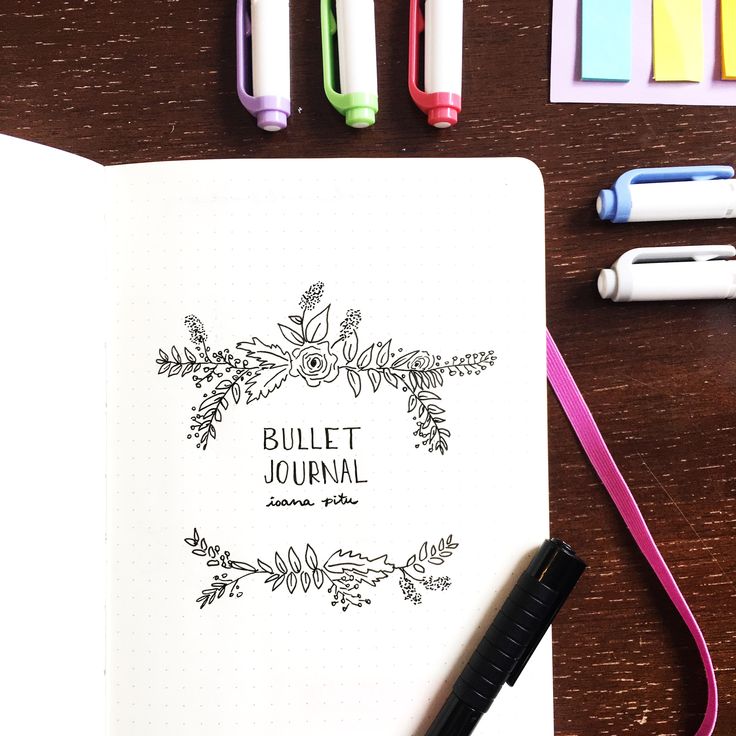 BULLET
JOURNAL
ioana pitu